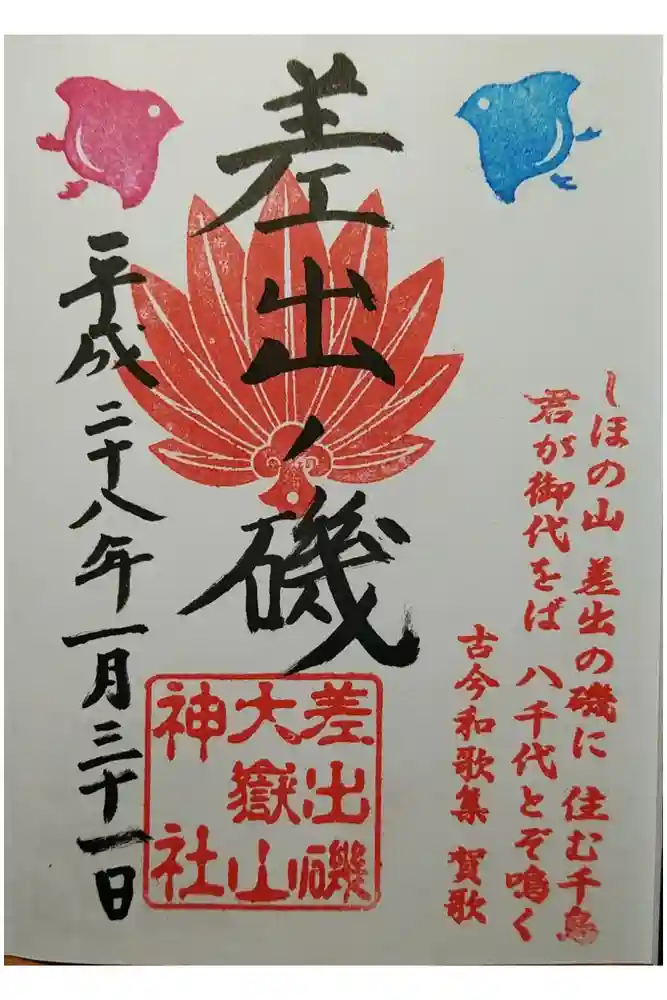 しほの山 差出の磯に 住む千鳥
君が御代をば 八千代とぞ鳴く
古今和歌集 賀歌
差出ノ磯
差出磯
大嶽山
神社
平成二十八年一月三十一日